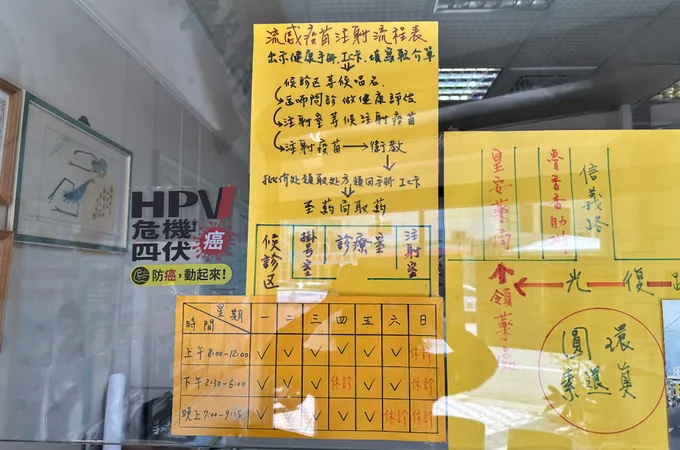 流感疫苗注射流程表
出示健康手冊、IC卡、填寫轉介單
候診区等候唱名
医師問診 做健康評估
注射室等候注射疫苗
注射疫苗 衛教
批價处領取处方、領回手冊 IC卡
至药局取药
候診区
掛号室
診療室
注射室
HPV
危機
四伏
癌
防癌，動起來！
星期
時間
一 二 三 四 五 六 日
上午8:00-12:00 ✓ ✓ ✓ ✓ ✓ ✓ 休診
下午2:30-6:00 ✓ ✓ ✓ 休診 ✓ ✓ 休診
晚上7:00-9:15 ✓ ✓ ✓ ✓ 休診 休診
皇安薬局
魯香香
信義路
領薬處
光復
圓環